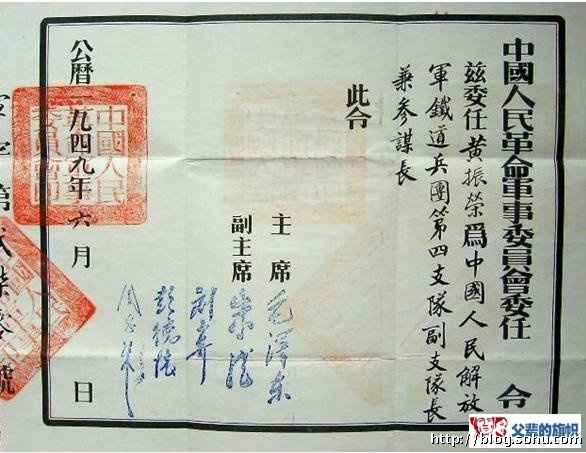 中國人民革命軍事委員會委任 令
茲委任黃振榮爲中國人民解放
軍鐵道兵團第四支隊副支隊長
兼參謀長
此令
主席 毛澤東
副主席 朱德
劉少奇
彭德懷
周恩來
公曆一九四九年六月 日
中國人民革命軍事委員會印
字第 號
父辈的旗帜
http://blog.sohu.com